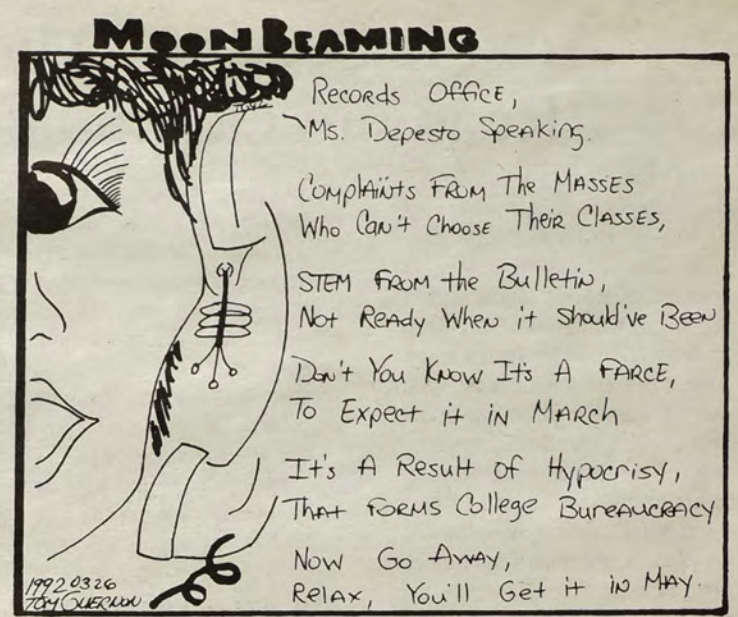 MOON BEAMING
Records Office,
Ms. Depesto Speaking.
Complaints From The Masses
Who Can't Choose Their Classes,
Stem From the Bulletin,
Not Ready When it Should've Been
Don't You Know It's A Farce,
To Expect it in March
It's A Result of Hypocrisy,
That Forms College Bureaucracy
Now Go Away,
Relax, You'll Get it in May.
19920326
Tom Guernon